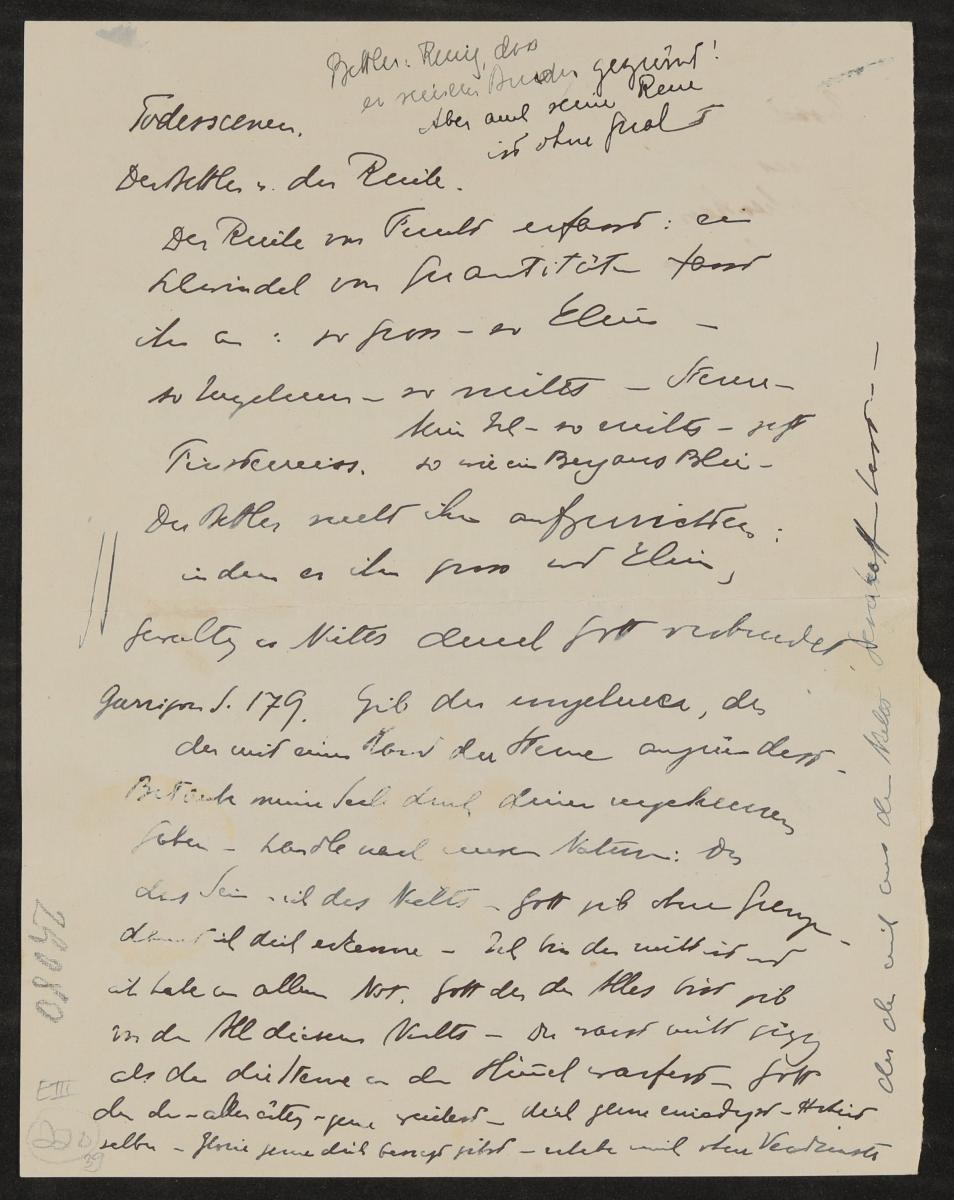 Bettler: Reuig, das
er seinem Bruder gezürnt!
Aber auch seine Reue
ist ohne Qual
Todesscenen.
Der Bettler u. der Reiche.
Der Reiche von Furcht erfasst: ein
Schwindel von Quantitäten fasst
ihn an: so gross – so klein –
so ungeheuer – so nichts – Sternen–
kein Ich – so nichts – jetzt
Finsterniss. so wie ein Berg aus Blei –
Der Bettler sucht ihn aufzurichten:
indem er ihn gross und klein,
Gewaltig u Nichts durch Gott verbindet
S. 179. Gib du ungeheurer, der
du mit einer Hand die Sterne anzündest –
meine Seele durch deine ungeheueren
Gaben – handle nach unsern Naturen: Du
das Sein – ich das Nichts – Gott gib ohne Grenzen –
damit ich dich erkenne – Ich bin der nicht ist und
ich habe an allem Not. Gott der du Alles bist gib
von dem All diesem Nichts – Du warst nicht
als du die Sterne an den Himmel warfest – Gott
der du – – gerne – dich gerne erniedrigst –
selber – gerne dich besiegt gibst – mich ohne Verdienste
der du mich aus dem Nichts hast –
29080
E III
39